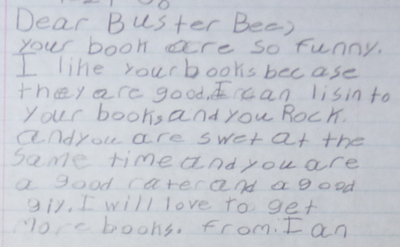 Dear Buster Bee,
your book are so funny.
I like your books becase
they are good. I can lisin to
your books and you Rock.
and you are swet at the
same time and you are
a good rater and a good
giy. I will love to get
More books. from. Ian